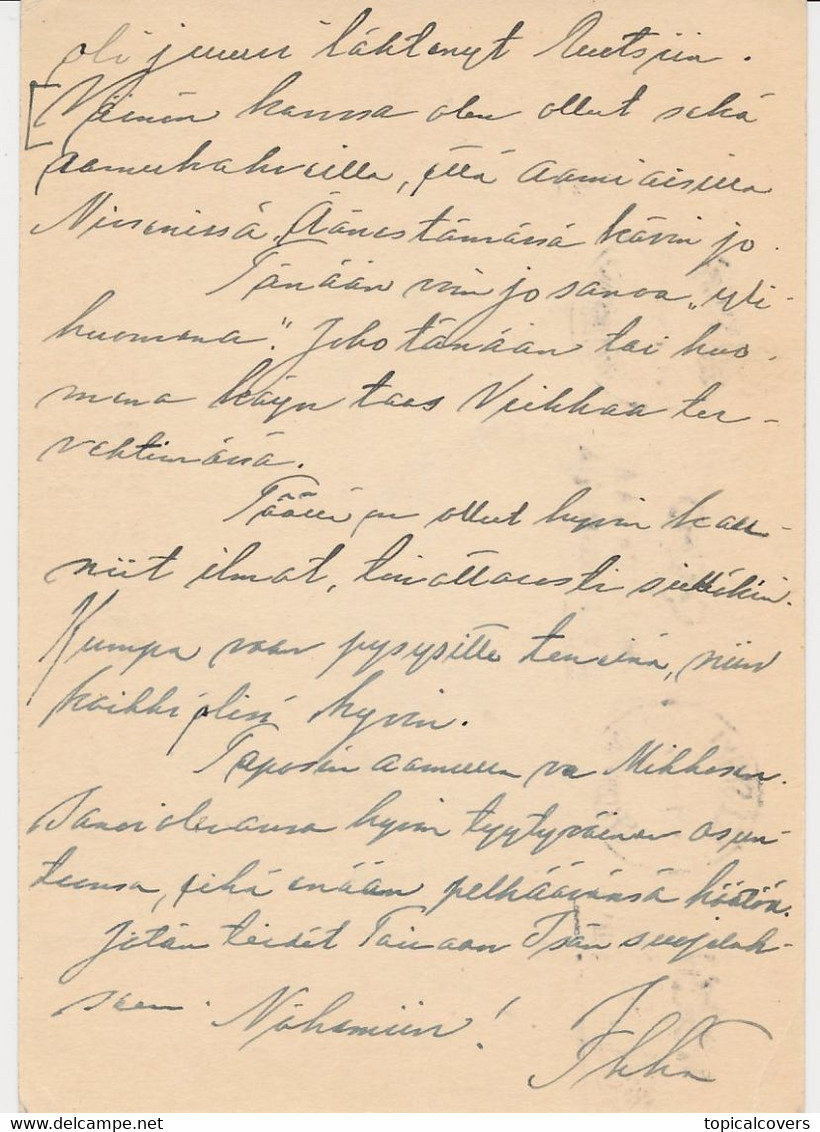 oli juuri lähtenyt Ruotsiin.
Väinön kanssa olen ollut sekä
aamukahveilla, että aamiaisilla
Nissenissä. Äänestämässä kävin jo.
Tänään voin jo sanoa „yli-
huomena". Joko tänään tai huo-
mena käyn taas Veikkaa ter-
vehtimässä.
Täällä on ollut hyvin kau-
niit ilmat, toivottavasti sielläkin.
Kumpa vaan pysysitte terveinä, niin
kaikki olisi hyvin.
Tapasin aamulla va Mikkosen.
Sanoi olevansa hyvin tyytyväinen asun-
toonsa, eikä enään pelkäävänsä häätöä.
Jätän teidät Taivaan Isän suojeluk-
seen. Näkemiin!
Ilkka
topicalcovers